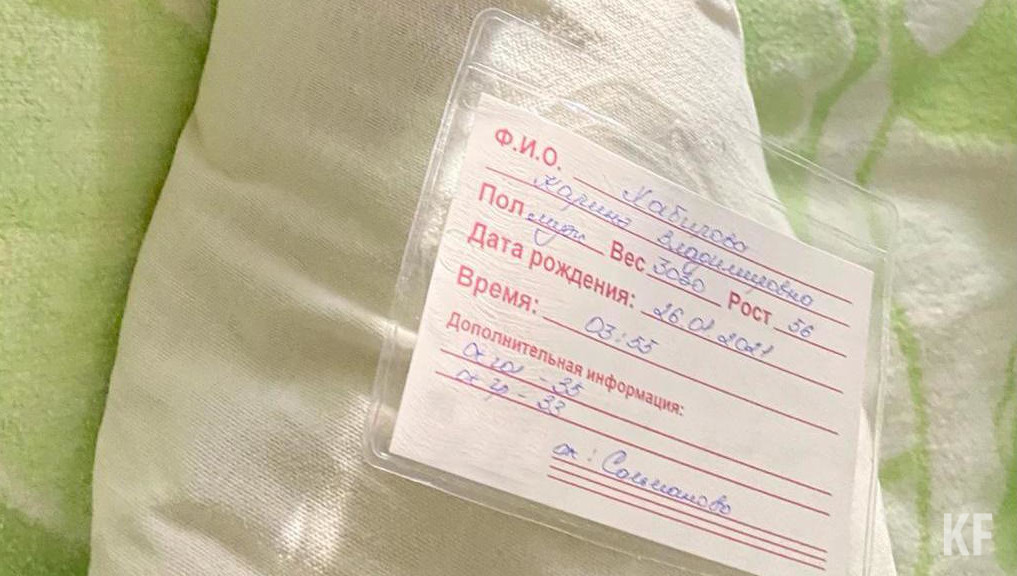 Ф.И.О. Хабилова
Карина Владимировна
Пол муж Вес 3030 Рост 56
Дата рождения: 26.01.2021
Время: 03:55
Дополнительная информация:
Ок гол - 35
Ок гр - 33
ак: Салманова
KF